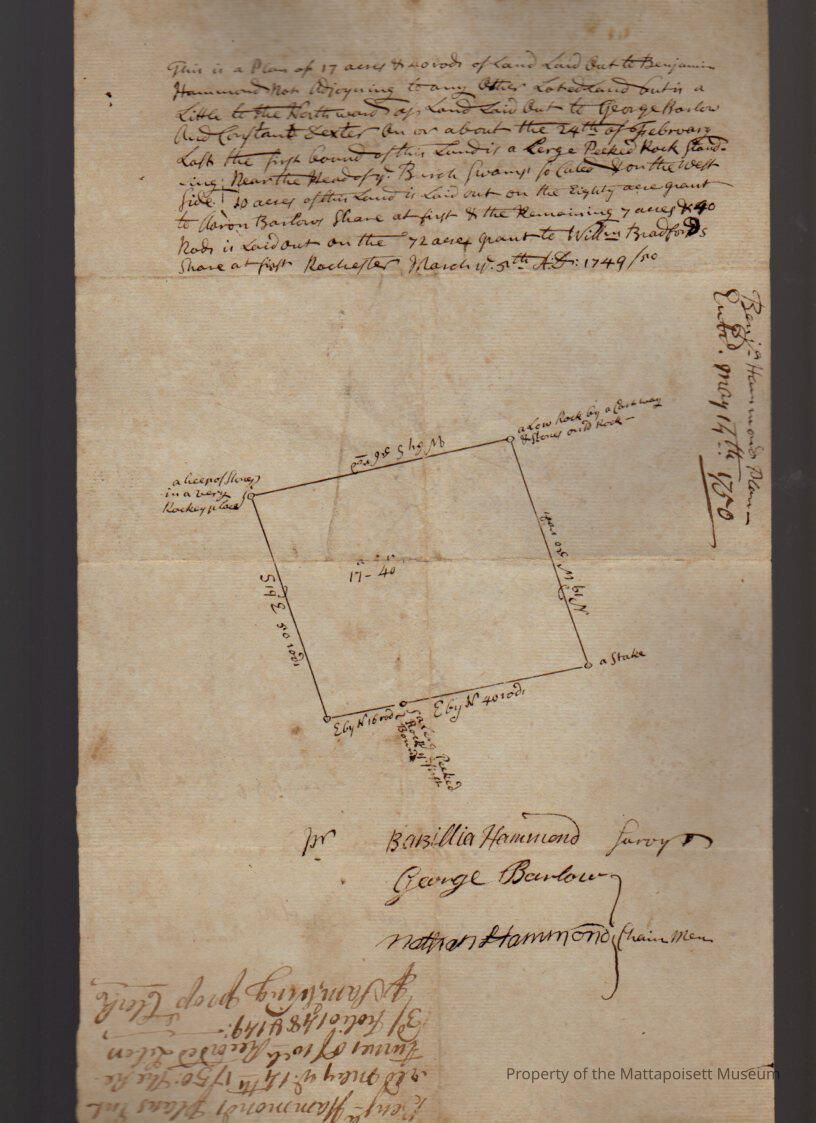 This is a Plan of 17 acres & 40 rods of Land Laid Out to Benjamin
Hammond Not Adjoyning to any Other Loted Land but is a
Little to the Northward of Land Laid Out to George Barlow
And Constant Dexter On or about the 24th of February
Last the first bound of this Land is a Large Peeked Rock Stand-
ing Near the Head of ye Burch Swamp so Caled & on the West
Side 10 acres of this Land is Laid out on the Eighty acre grant
to Aaron Barlows Share at first & the Remaining 7 acres & 40
Rods is Laid out on the 72 acre grant to Willm Bradfords
Share at first Rochester March ye 5th A.D: 1749/50
Benja Hammonds Plan
Entrd. may 14th 1750
a Low Rock by a Cartway
& Stones on sd Rock
W by S 56 rod
a heep of Stones
in a very
Rockey place
17 - 40
N by W 50 rod
S by E 50 rod
a Stake
E by N 16 rod
E by N 40 rod
a Larg Peeked
Rock ye first
Bound
pr
Barzillia Hammond Survyr
George Barlow
Nathan Hammond Chain Men
Benja Hammonds Plans Ent
red may ye 14th 1750
Recorded
folio 148 & 149
pr Saml Wing prop Clerk
Property of the Mattapoisett Museum